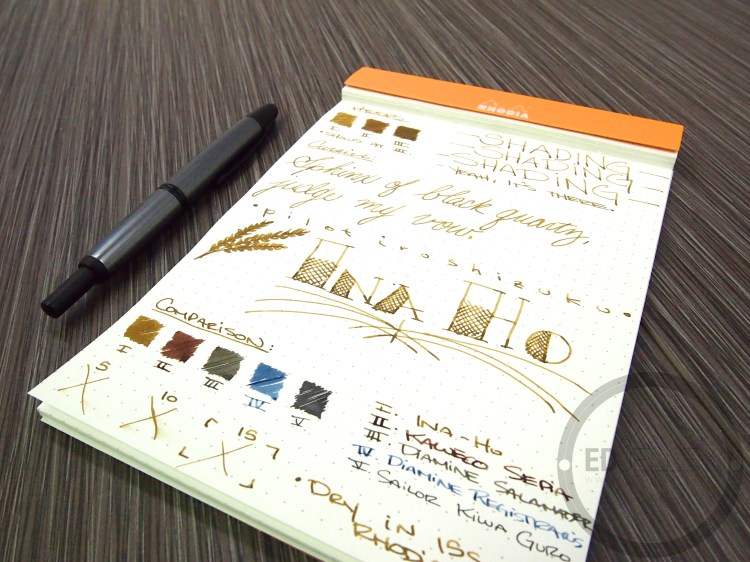 RHODIA
I II III
SHADING
SHADING
SHADING
YEAH! IT'S THERE.
Cursive:
Sphinx of black quartz,
judge my vow.
• Pilot iroshizuku •
INA HO
COMPARISON:
I II III IV V
5 10 15
I: INA-HO
II: KAWECO SEPIA
III: DIAMINE SALAMANDER
IV: DIAMINE REGISTRAR'S
V: SAILOR KIWA GURO
• DRY IN 15s
RHOD
ED